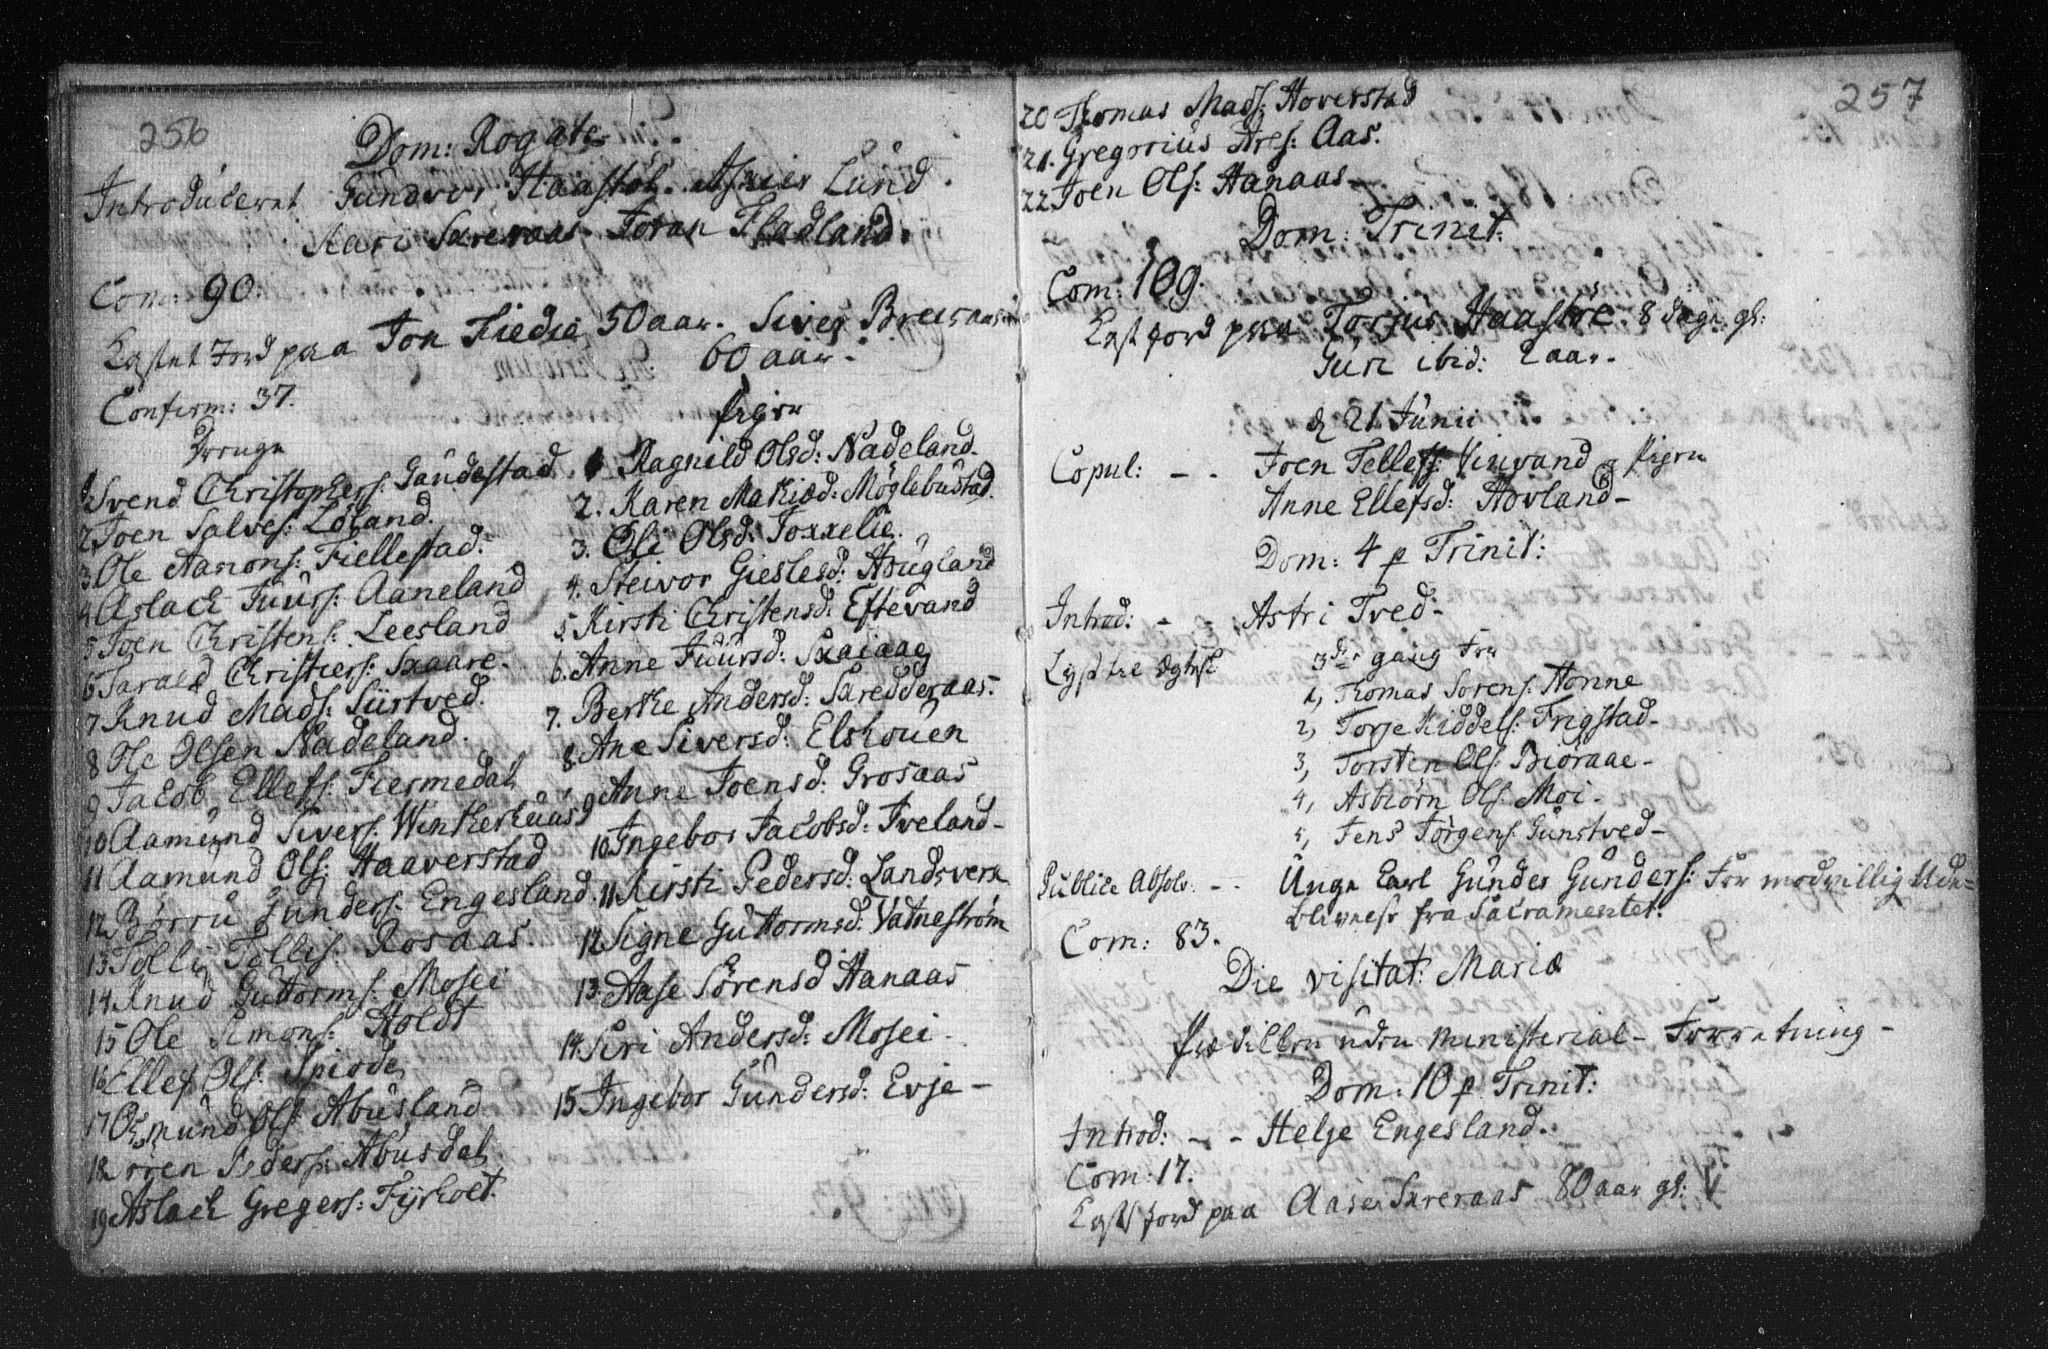 256
Dom: Rogate
Introduceret Gundvor Haastøl. Asnier Lund.
Kari Skreraas. Joran Fladland.
Com: 90.
Kastet Jord paa Jon Kiedie 50 aar. Siver Breiraas
60 aar.
Confirm: 37.
Drenge
1. Svend Christophers: Gaudestad
2. Joen Salves: Løland.
3. Ole Aanons: Fiellestad.
4 Aslach Juurs: Aaneland
5 Joen Christens: Leesland
6 Tarald Christiers: Skaare.
7 Knud Mads: Siirtved.
8 Ole Olsen Nadeland.
9 Jacob Ellefs: Fiermedal
10 Aamund Sivers: Winkerhuus
11 Aamund Ols: Haaverstad
12 Børru Gunders: Engesland.
13 Tolli Tollis: Rosaas.
14 Knud Guttorms: Mosei
15 Ole Simons: Holdt
16 Ellef Ols: Spiode
17 Osmund Ols: Abusland
18 Søren Peders: Abusdal
19 Aslach Gregers: Fyrholt.
Piger
1 Ragnild Olsd: Nadeland.
2. Karen Makiæd: Møglebustad.
3. Ole Olsd: Toxxelie.
4. Steivor Gieslesd: Haugland
5. Kirsti Christensd: Eftevand
6. Anne Juursd: Skaiaae
7. Berthe Andersd: Skredderaas.
8. Ane Siversd: Elshouen
9 Anne Joensd: Grosaas
10 Ingebor Jacobsd: Iveland-
11 Kirsti Pedersd: Landsverk
12 Signe Guttormsd: Vatnestrøm
13. Aase Sørensd Hanaas
14. Siri Andersd: Mosei.
15. Ingebor Gundersd: Evje-
257
20 Thomas Mads: Hoverstad
21. Gregorius Ares: Aas.
22 Joen Ols: Hanaas
Dom: Trinit:
Com: 109.
Kast jord paa Torjus Haastøe 8 dage gl:
Guri ibid: 2 aar.
d 21 Junii
Copul: - - Joen Tellefs: Viuvand og Pigen
Anne Ellefsd: Hovland-
Dom: 4 p Trinit:
Introd: - - Astri Tved-
Lyst til Ægtesk: 3die gang for
1, Thomas Sorens: Honne
2, Torje Kiddels: Frigstad-
3, Torsten Ols: Biøraae-
4, Asbiørn Ols: Moi-
5, Jens Jørgens: Gunstved-
Publice Absolv: - - Unge Carl Gunder Gunders: for modvillig Ude=
blivelse fra Sacramentet.
Com: 83.
Die visitat: Mariæ
Prædiken uden ministerial-Forretning-
Dom: 10 p Trinit:
Introd: - - Helje Engesland.
Com: 17.
Kast jord paa Aase Skreraas 80 aar gl: